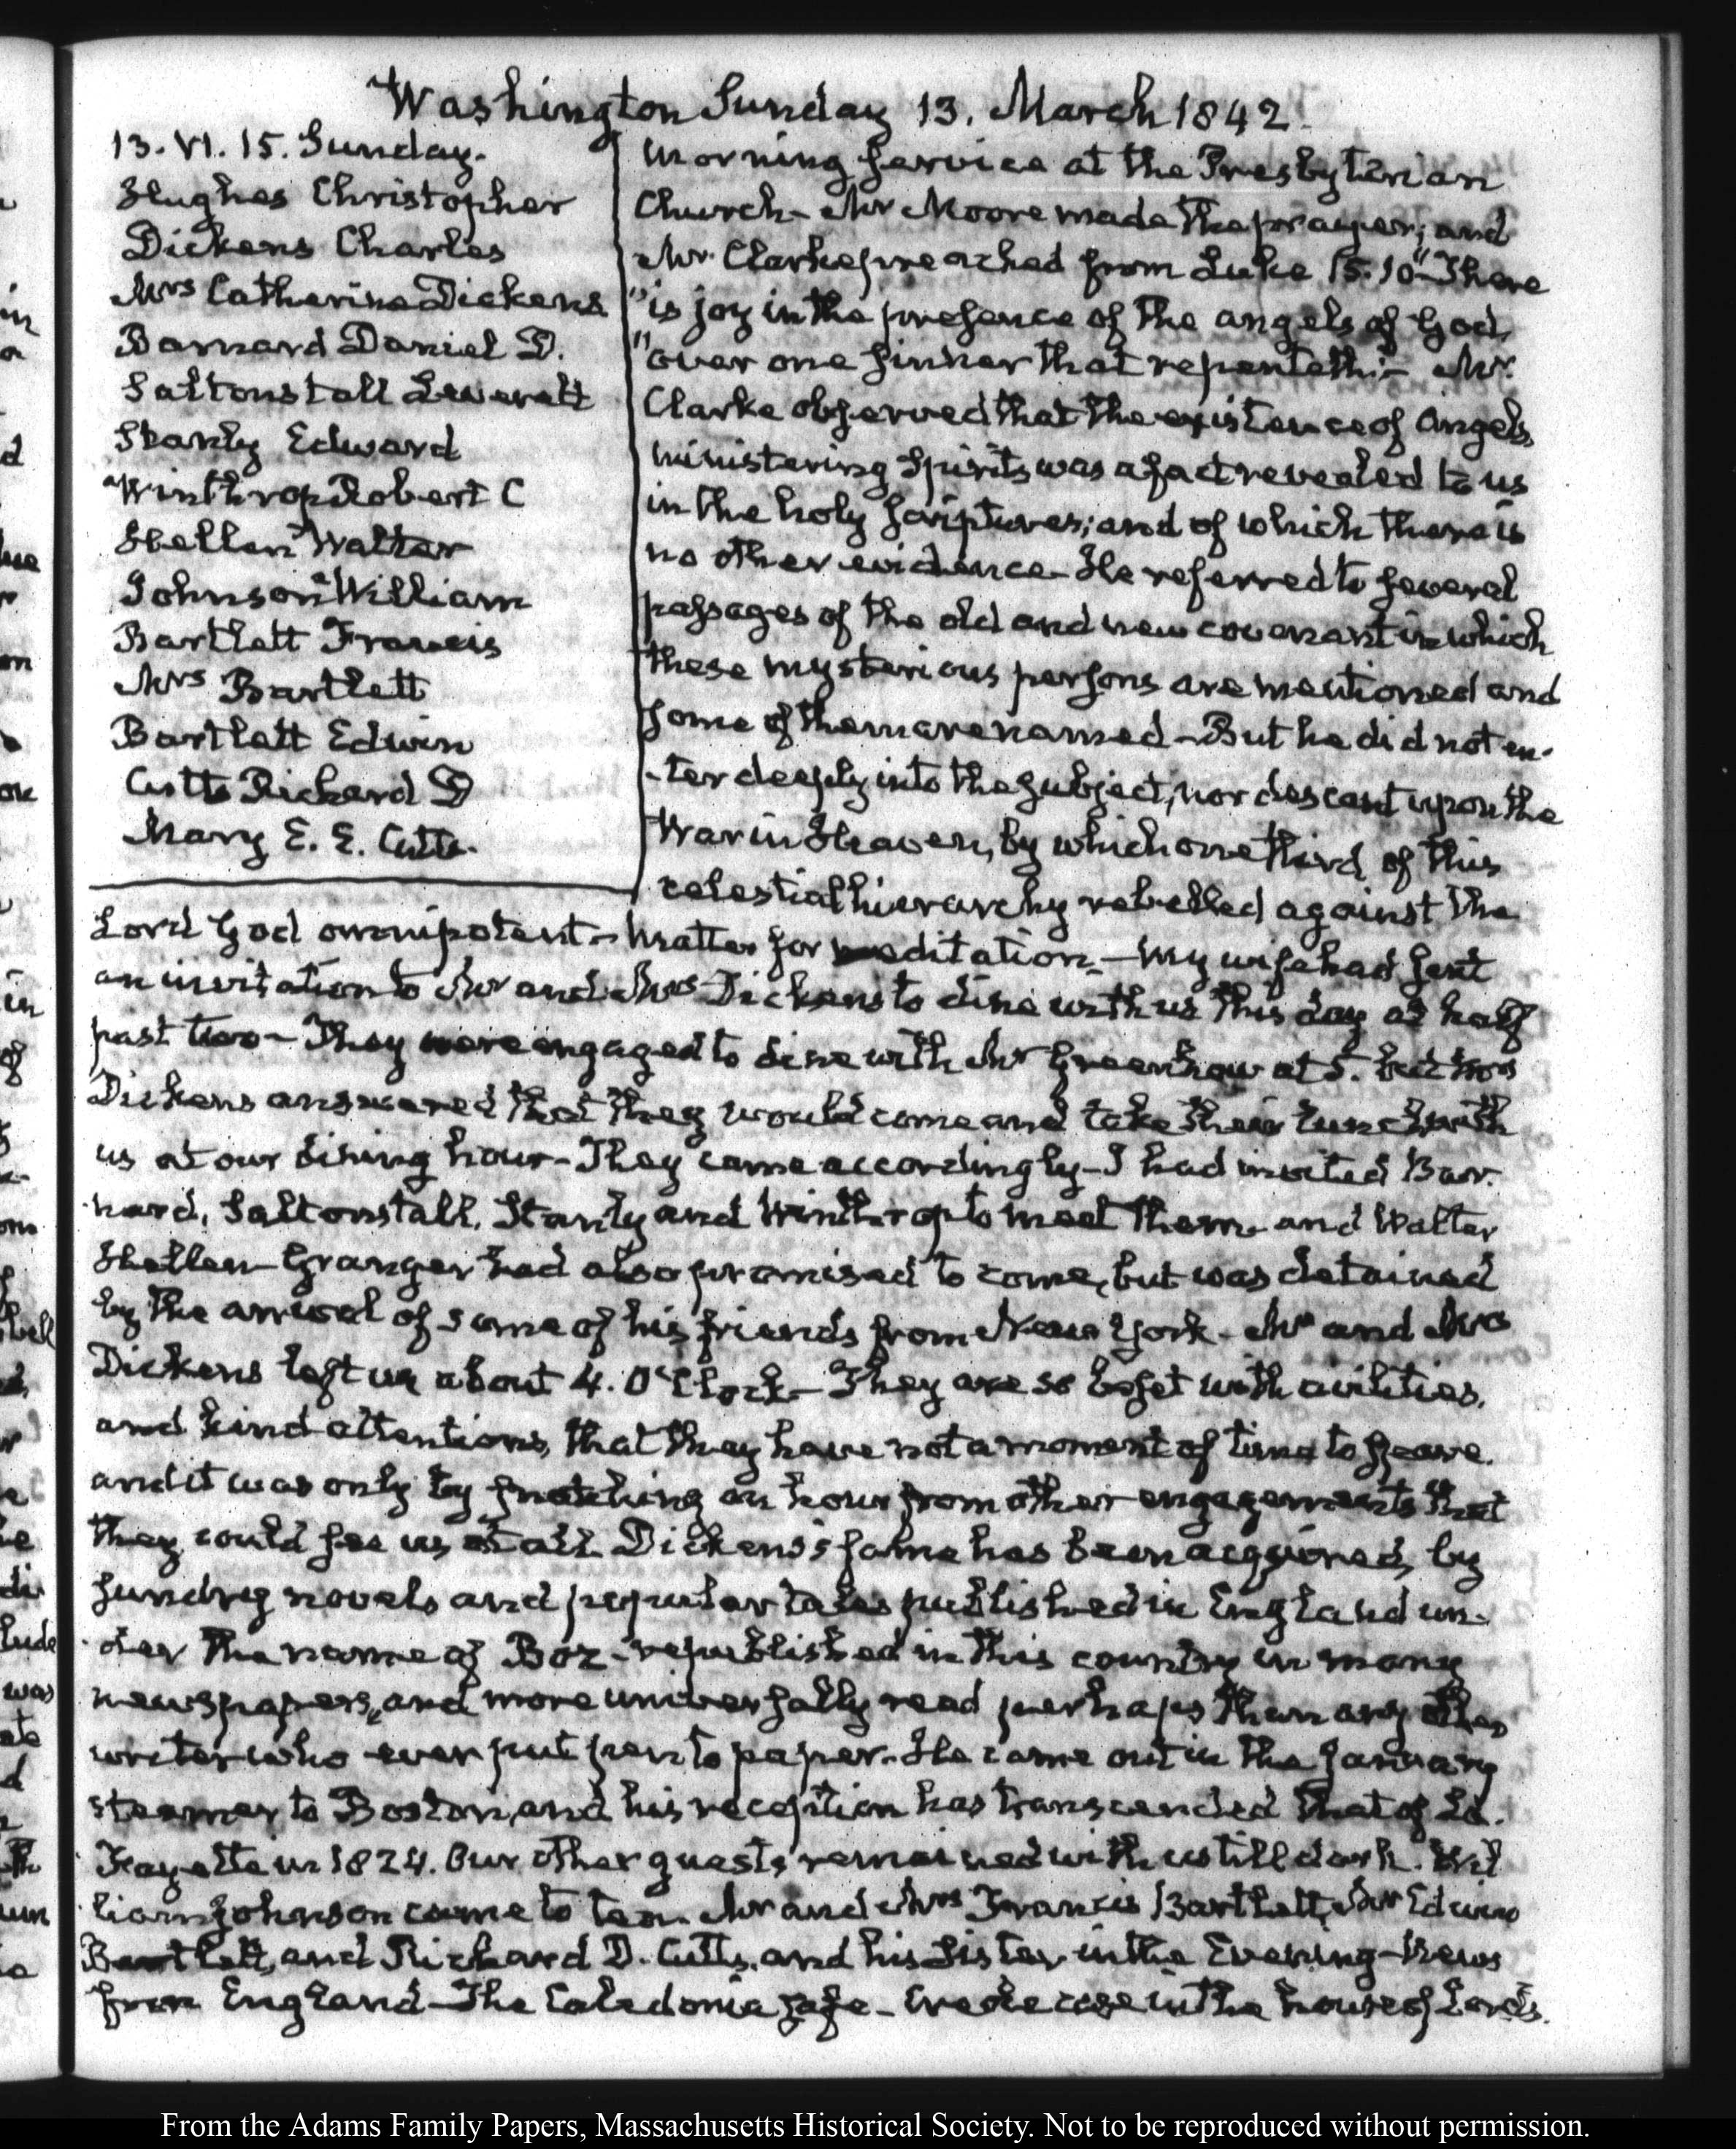 Washington Sunday 13. March 1842.
13. VI. 15. Sunday.
Hughes Christopher
Dickens Charles
Mrs Catherine Dickens
Barnard Daniel D.
Saltonstall Leverett
Stanly Edward
Winthrop Robert C
Hellen Walter
Johnson William
Bartlett Francis
Mrs Bartlett
Bartlett Edwin
Cutts Richard D
Mary E. E. Cutts.
Morning service at the Presbyterian
Church— Mr Moore made the prayer; and
Mr. Clarke preached from Luke 15.10 "There
"is joy in the presence of the angels of God,
"over one sinner that repenteth:— Mr.
Clarke observed that the existence of Angels,
ministering Spirits was a fact revealed to us
in the holy scriptures; and of which there is
no other evidence— He referred to several
passages of the old and new covenant in which
these mysterious persons are mentioned and
some of them are named— But he did not en-
-ter deeply into the subject, nor descant upon the
War in Heaven, by which one third of this
celestial hierarchy rebelled against the
Lord God omnipotent— Matter for meditation.— My wife had sent
an invitation to Mr and Mrs Dickens to dine with us this day at half
past two— They were engaged to dine with Mr Greenhow at 5. but Mrs
Dickens answered that they would come and take their lunch with
us at our dining hour— They came accordingly— I had invited Bar-
nard, Saltonstall, Stanly and Winthrop to meet them— and Walter
Hellen— Granger had also promised to come, but was detained
by the arrival of some of his friends from New York— Mr and Mrs
Dickens left us about 4. O'Clock— They are so beset with civilities,
and kind attentions, that they have not a moment of time to spare.
and it was only by snatching an hour from other engagements that
they could see us at all. Dickens's fame has been acquired, by
sundry novels and popular tales published in England un-
-der the name of Boz— republished in this country in many
newspapers, and more universally read perhaps than any other
writer who ever put pen to paper— He came out in the January
steamer to Boston, and his reception has transcended that of La
Fayette in 1824. Our other guests remained with us till dark. Wil
liam Johnson came to tea. Mr and Mrs Francis Bartlett, Mr Edwin
Bartlett, and Richard D. Cutts, and his Sister in the Evening— News
from England— The Caledonia safe— Creole case in the house of Lords.
From the Adams Family Papers, Massachusetts Historical Society. Not to be reproduced without permission.